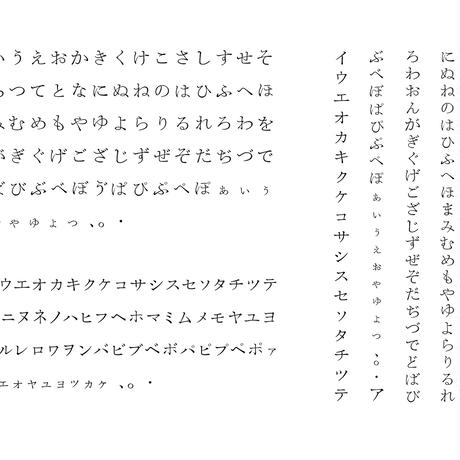 いうえおかきくけこさしすせそ
ちつてとなにぬねのはひふへほ
みむめもやゆよらりるれろわを
がぎぐげござじずぜぞだぢづで
ばびぶべぼゔぱぴぷぺぽぁぃぅ
ゃゅょっ、。・
ウエオカキクケコサシスセソタチツテ
ニヌネノハヒフヘホマミムメモヤユヨ
ルレロワヲンバビブベボパピプペポァ
ェォャュョッヵヶ、。・
にぬねのはひふへほまみむめもやゆよらりるれ
ろわをんがぎぐげござじずぜぞだぢづでどばび
ぶべぼぱぴぷぺぽぁぃぅぇぉゃゅょっ、。・ア
イウエオカキクケコサシスセソタチツテ